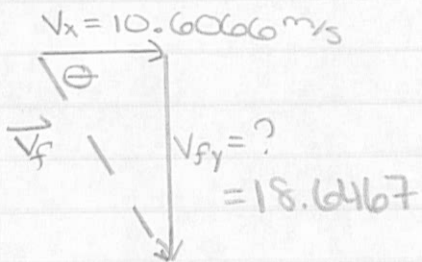 Vx = 10.6066 m/s
θ
Vf
Vfy = ?
= 18.6467